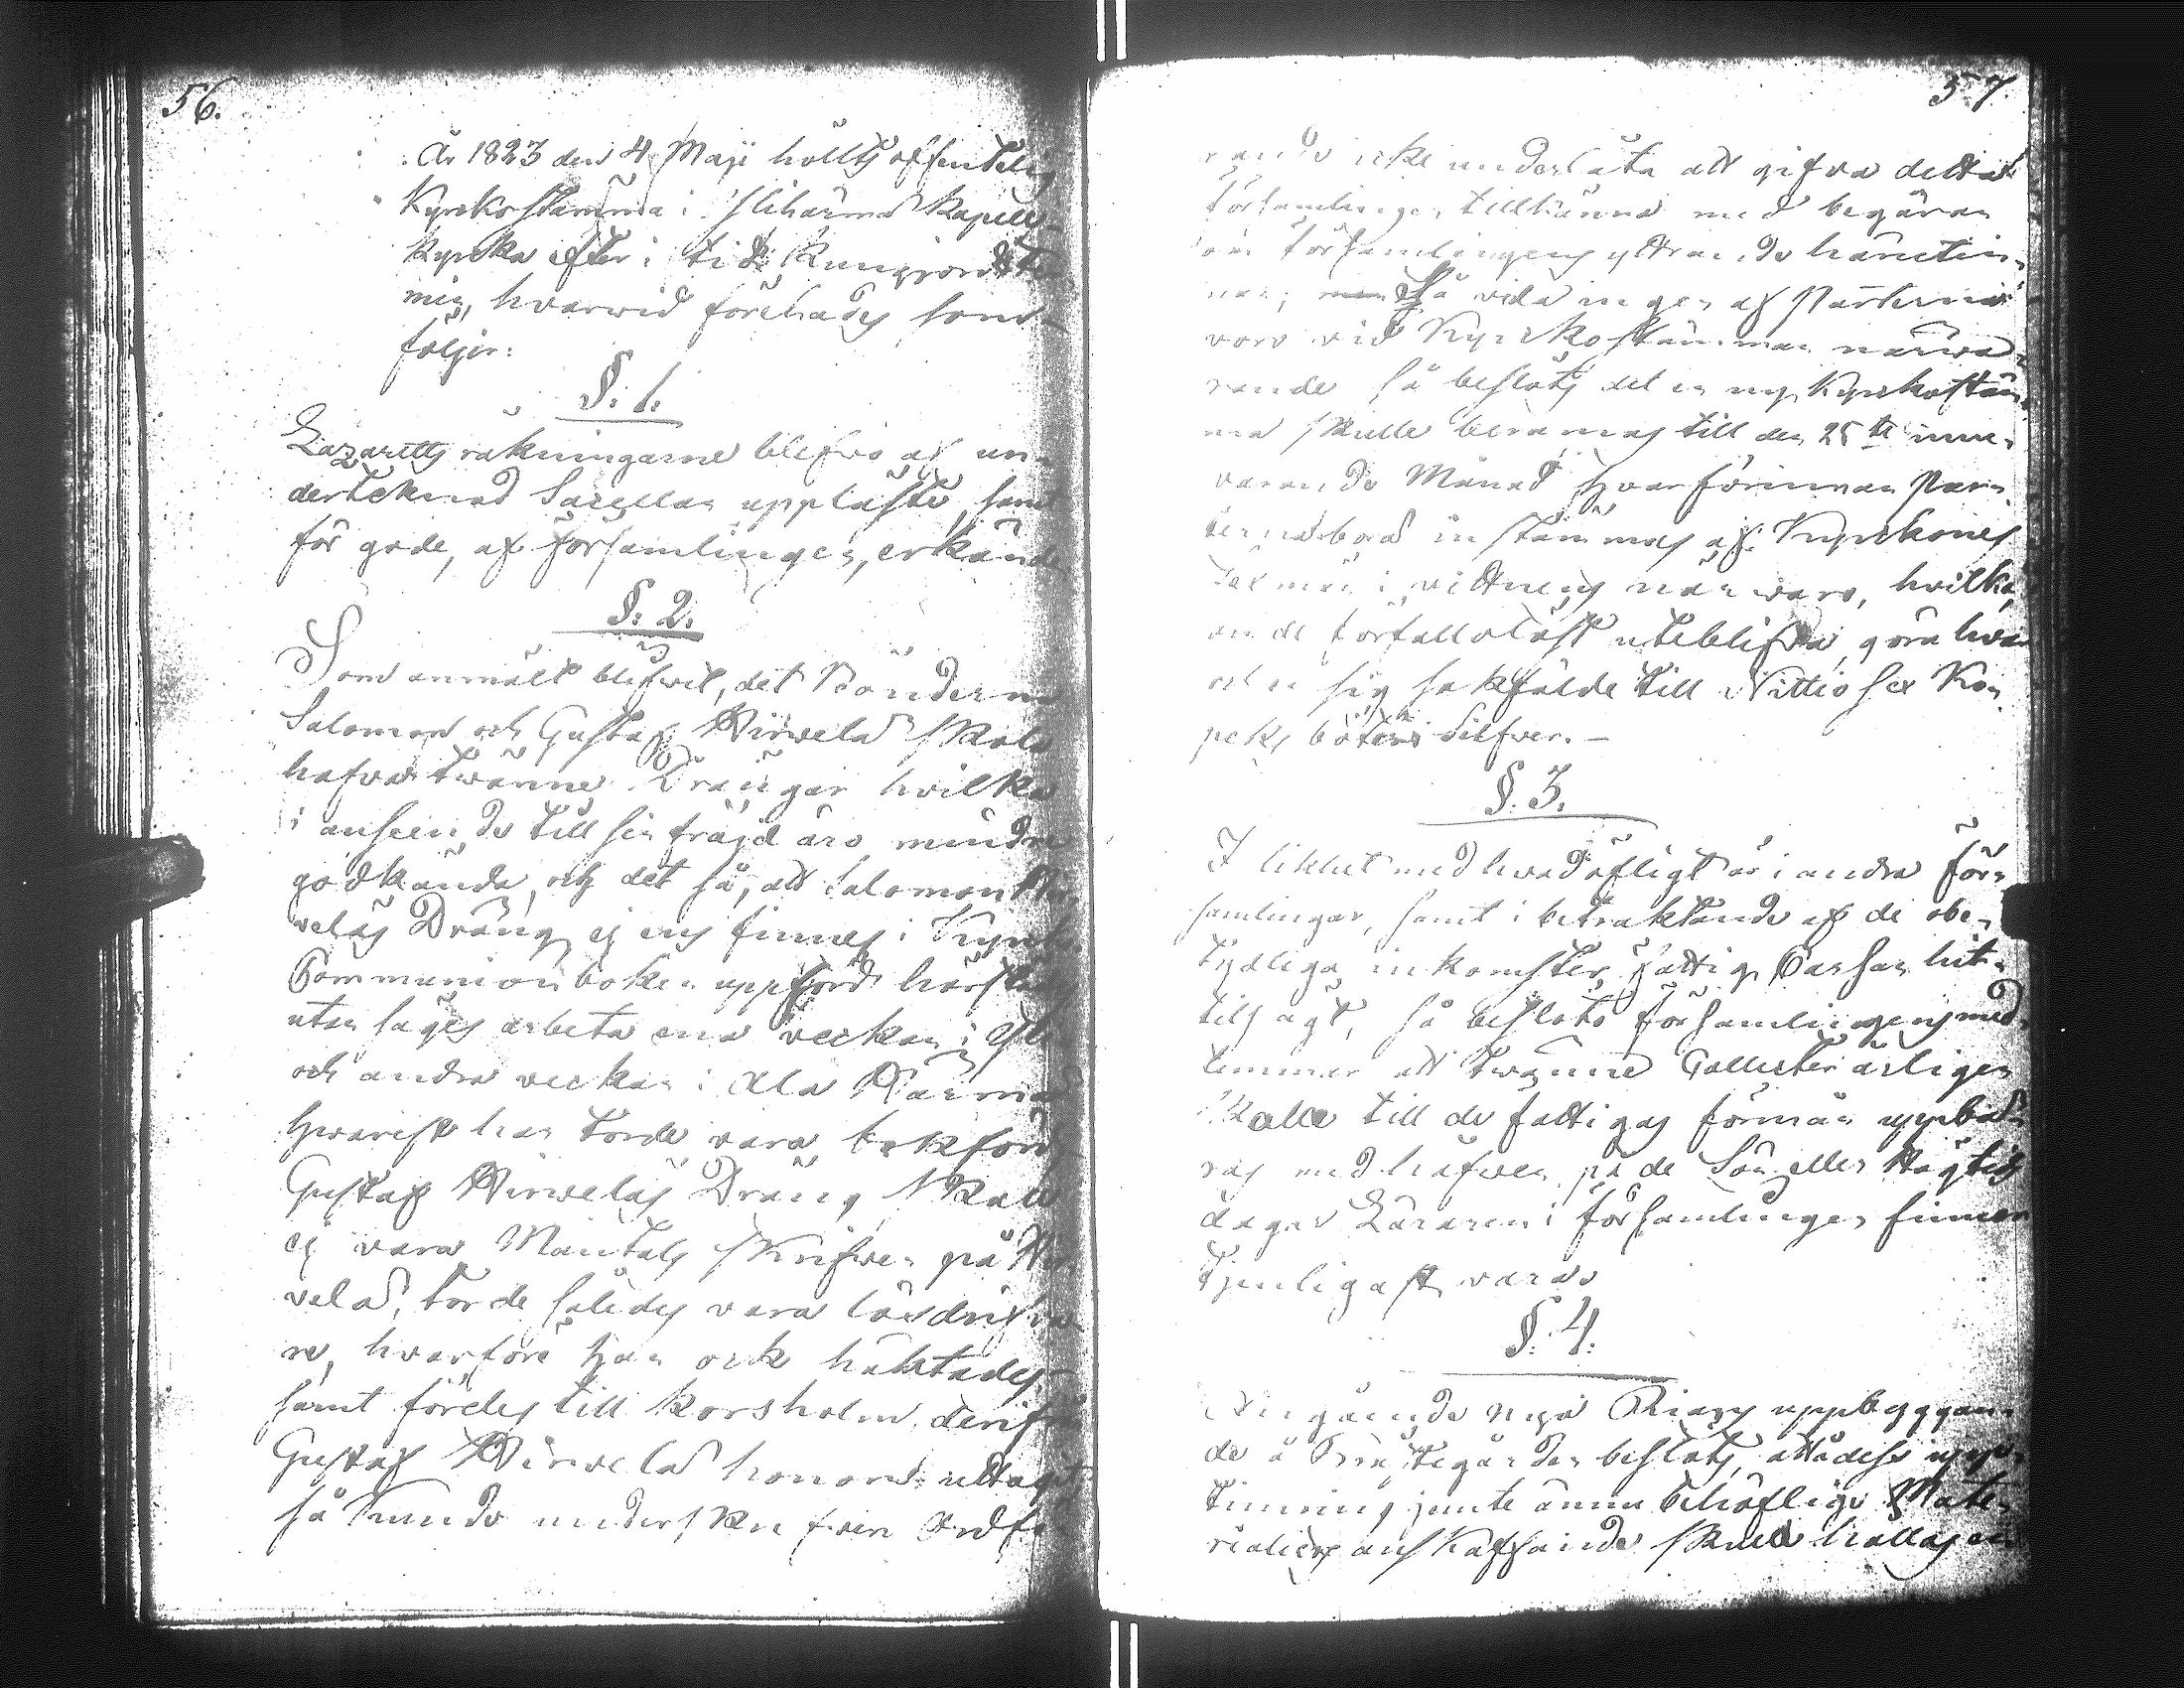 56.
År 1823 den 4 Maji hölltz offentelig
Kyrkostämma i Ylihärmä Kapell
kyrka efter i tid kungjord ter
min, hvarvid förehades som
följer:
§. 1.
Lazaretts räkningarne blefvo af un
dertecknad Sacellan uppläste samt
för gode, af Församlingen, erkände
§. 2.
Som anmält blifvit, det Bönderne
Salomon och Gustaf Wirvela skola
hafva tvänne Drängar hvilka
i anseende till sin frägd äro mindre
godkände, och det så, att Salomon
velas Dräng ej ens finnes i Kyrko
Communion boken uppförd härstä
utan säges arbeta ena veckan i
och andra veckan i Ala Härmä
hvarest han torde vara bokförd
Gustaf Wirvelas Dräng skall
ej vara Mantals skrifven på
vela, torde således vara lösdrifva
re, hvarföre han ock häktades
samt fördes till Korsholm, derif
Gustaf Wirvela honom uttagit
så kunde underskrefven Ordf
57
rande icke underlåta att gifva detta
församlingen tillkänna med begäran
om församlingens yttrande häruti
nan; Så vida ingen af Parterna
voro vid Kyrkostämman närva
rande så beslöts det en ny Kyrkostäm
ma skulle beramas till den 25te inne
varande Månad hvarförinnan Par
terna borde instämmas af Kyrkones
vittnes närvaro, hvilka
om de förfallolöst uteblifva, göra hvar
och en sig sakfälde till Nittio sex Ko
peks böter Silfver. –
§. 3.
I likhet med hvad öfligt är i andra För
samlingar, samt i betraktande af de obe
tydliga inkomster, fattig Cassan hit
tils ägt, så beslöto Församlingens med
lemmar att tvänne Collecter årligen
skulle till de fattigas förmån uppbä
ras med håfven på de Sön eller Högtids
dagar Läraren i församlingen finner
tjenligast vara
§. 4.
Angående nya Rians uppbyggan
de å Prästegården beslöts, att å dess upp
timring jemte ännu behöflige Mate
rialiers anskaffande skulle hållas en